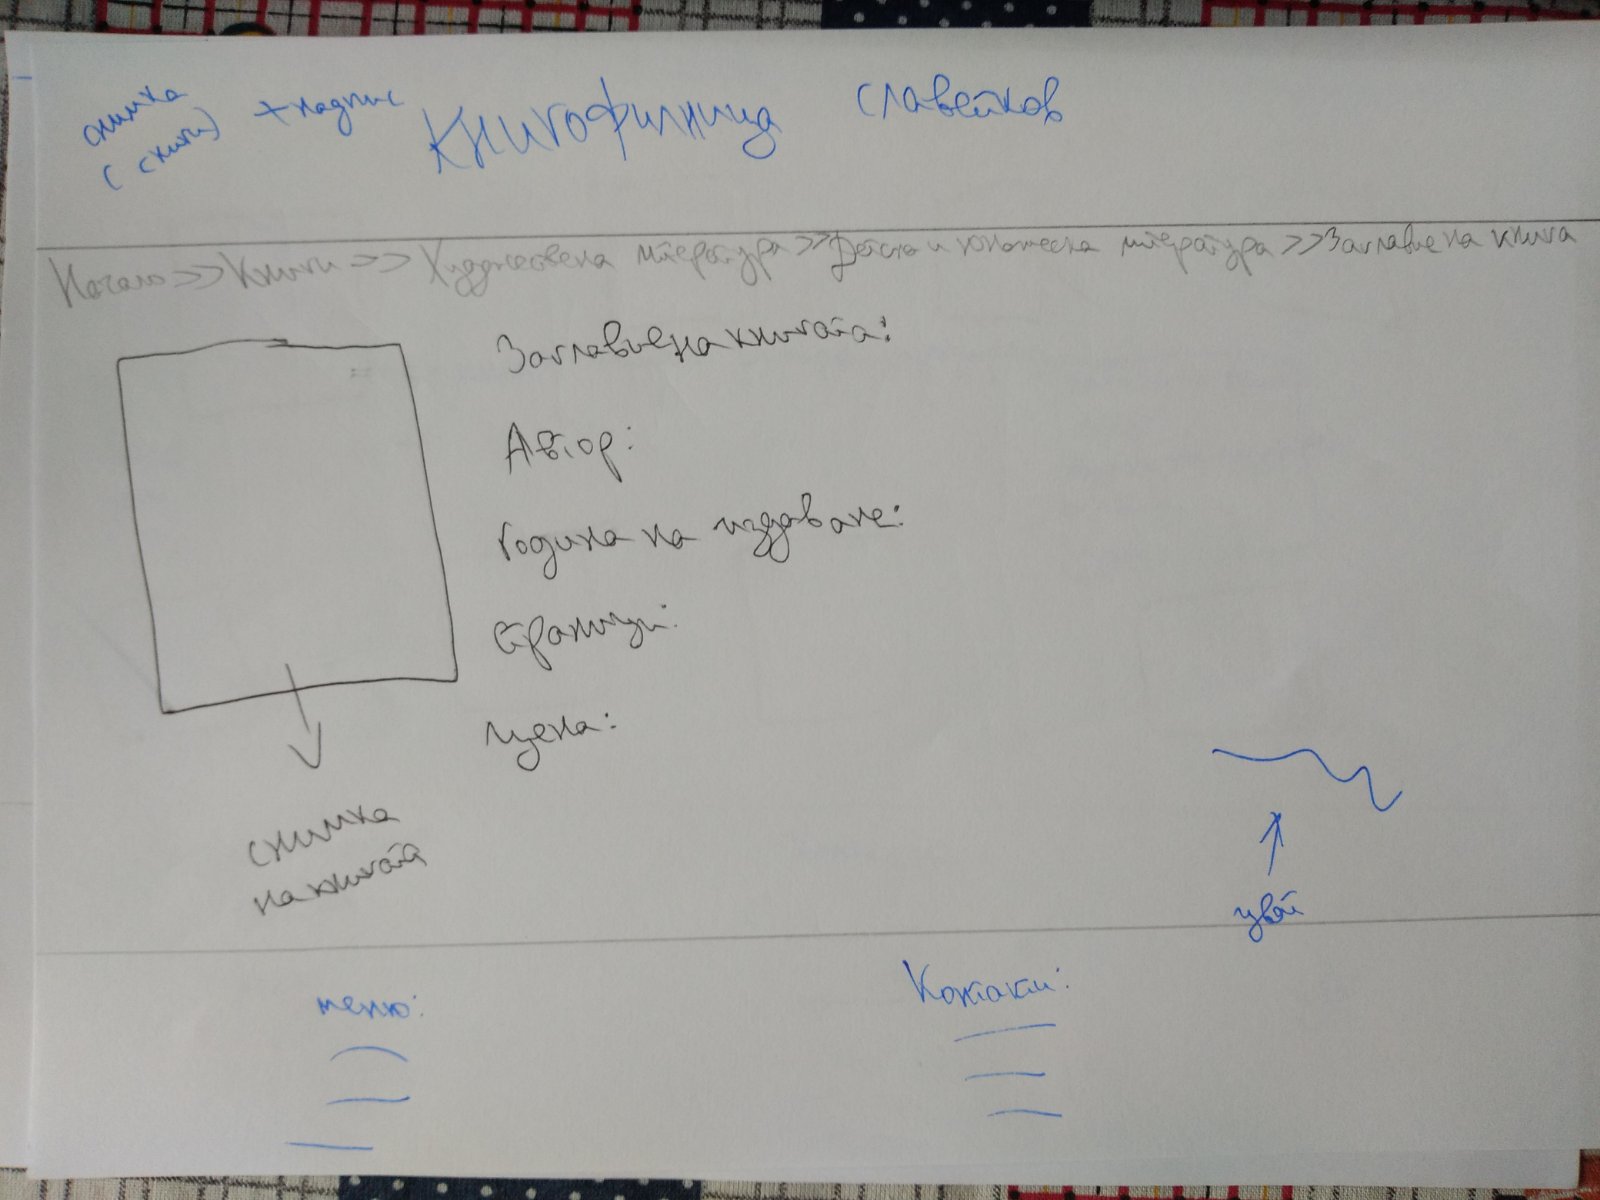 снимка + надпис Книгофилница Славейков
(книги)
Начало >> Книги >> Художествена литература >> Детска и юношеска литература >> Заглавие на книга
Заглавие на книгата:
Автор:
Година на издаване:
Страници:
Цена:
снимка
на книгата
цвят
меню:
Контакти: